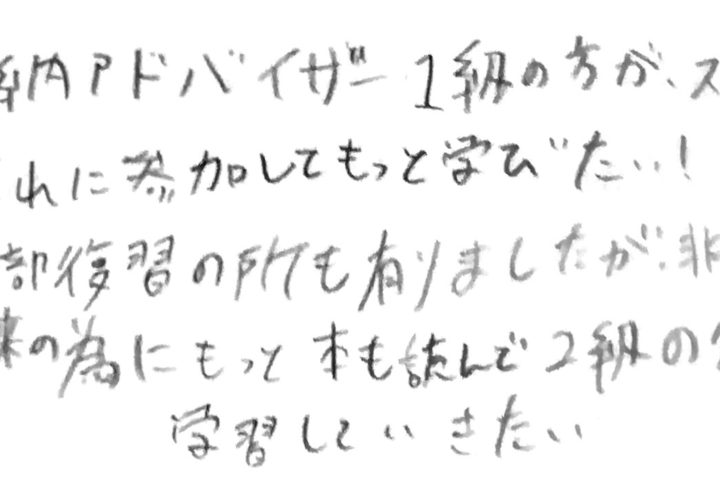 納アドバイザー1級の方が、ス
れに参加してもっと学びたい!
部復習の所も有りましたが、非
来の為にもっと本も読んで2級の
学習していきたい